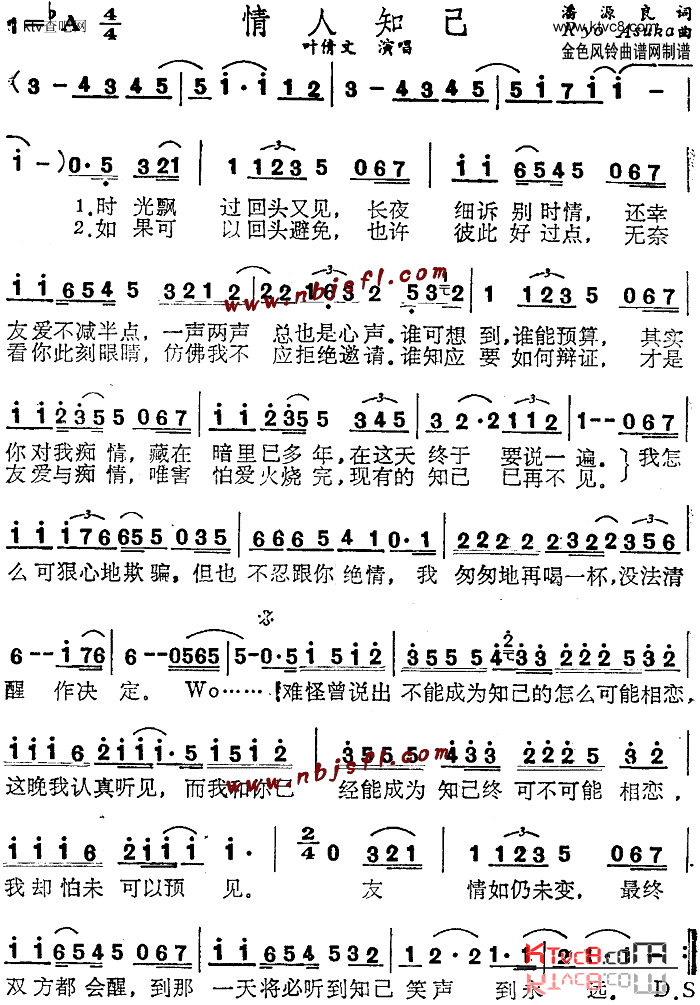 1=♭A 4/4 情人知己 潘源良 词
KTV查吧网 叶倩文 演唱 www.ktvc8.com
Ryo Asuka曲
金色风铃曲谱网制谱
(3 - 4345 | 5i·i i12 | 3 - 4345 | 517i i -
i -) 0·5 321 | 1 1235 067 | i i 6545 067
1.时光飘 过回头又见，长夜 细诉别时情，还幸
2.如果可 以回头避免，也许 彼此好过点，无奈
i i 6545 5 3212 | 221632 2 5322 | 1 1235 067
www.nbjsfl.com
友爱不减半点，一声两声 总也是心声。谁可想到，谁能预算，其实
看你此刻眼睛，仿佛我不 应拒绝邀请。谁知应要 如何辩证，才是
i i 2355 067 | i i 2355 345 | 32·2112 | 1--067
你对我痴情，藏在 暗里已多年，在这天终于 要说一遍。}我怎
友爱与痴情，唯害 怕爱火烧完，现有的知己 已再不见。
i i i766 655 035 | 6665 410·1 | 2222 2322 2356
么可狠心地欺骗。但也 不忍跟你绝情，我 匆匆地再喝一杯，没法清
6--i76 | 6--0565 | 5-0·5 i5i2 | 3555 4233 2225 32
醒 作决定。 Wo…… [难怪曾说出 不能成为知己的怎么可能相恋，
iii6 2iii i·5 i5i2 | 3555 433 2225 32
www.nbjsfl.com
这晚我认真听见，而我和你已 经能成为 知己终可不可能 相恋，
iii6 2iii i· | 2/4 0 321 | 1 1235 067
我却怕未 可以预 见。 友 情如仍未变，最终
i i 6545 067 | i i 654 532 | 12·21·
KTvc8.com
双方都会醒，到那 一天将必听到知己 笑声 到永远。D.S